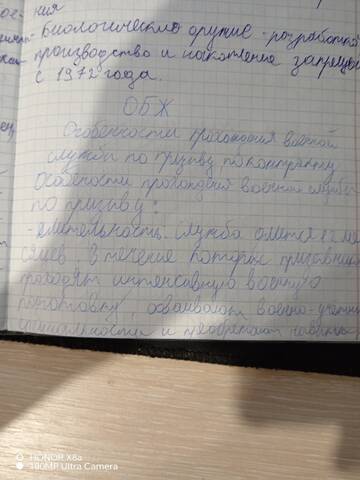 ния
биологическое оружие - разработка
производство и накопление запрещ
с 1972 года.
ОБЖ
Особенности прохождения военной
службы по призыву по контракту
Особености прохождения военной службы
по призыву:
длительность. служба длится 12 ме
сяцев. В течение которых призывники
проходят интенсивную военную
подготовку, осваивают военно-учетн
специальности и навыки
HONOR X8a
100MP Ultra Camera